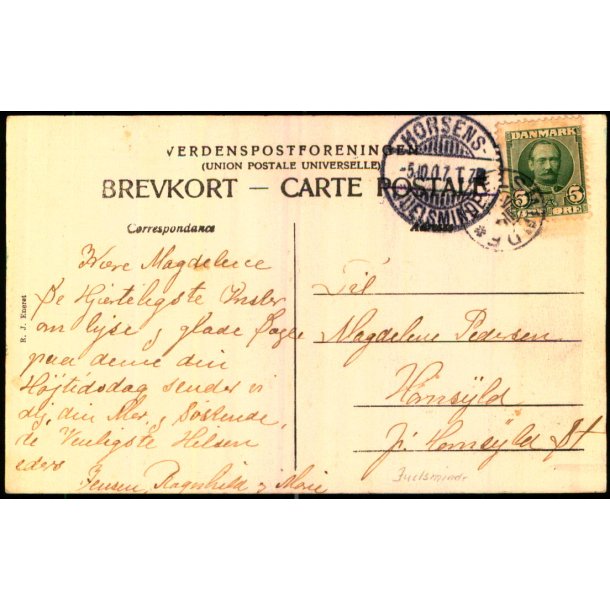 VERDENSPOSTFORENINGEN
(UNION POSTALE UNIVERSELLE)
BREVKORT — CARTE POSTALE
HORSENS-
-5.10.07. T.
JUELSMINDE
DANMARK
5 5
ØRE
Correspondance
Adresse
R. J. Eneret
Kære Magdelene
De Hjerteligste Ønsker
om lyse og glade Dage
paa denne din
Højtidsdag sendes vi
dig, din Mor, Søskende,
de Venligste Hilsen
eders
Jensen, Ragnhild & Marie
Til
Magdelene Pedersen
Hornsyld
pr. Hornsyld St
Juelsminde